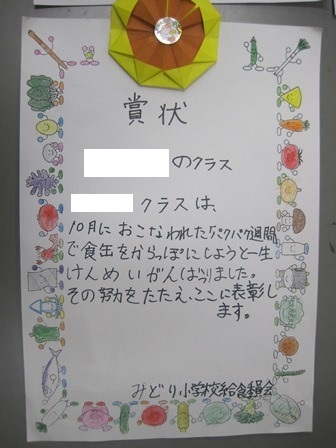 賞状
のクラス
クラスは、
10月におこなわれた「パクパク週間」
で食缶をからっぽにしようと一生
けんめいがんばりました。
その努力をたたえ、ここに表彰し
ます。
みどり小学校給食委員会